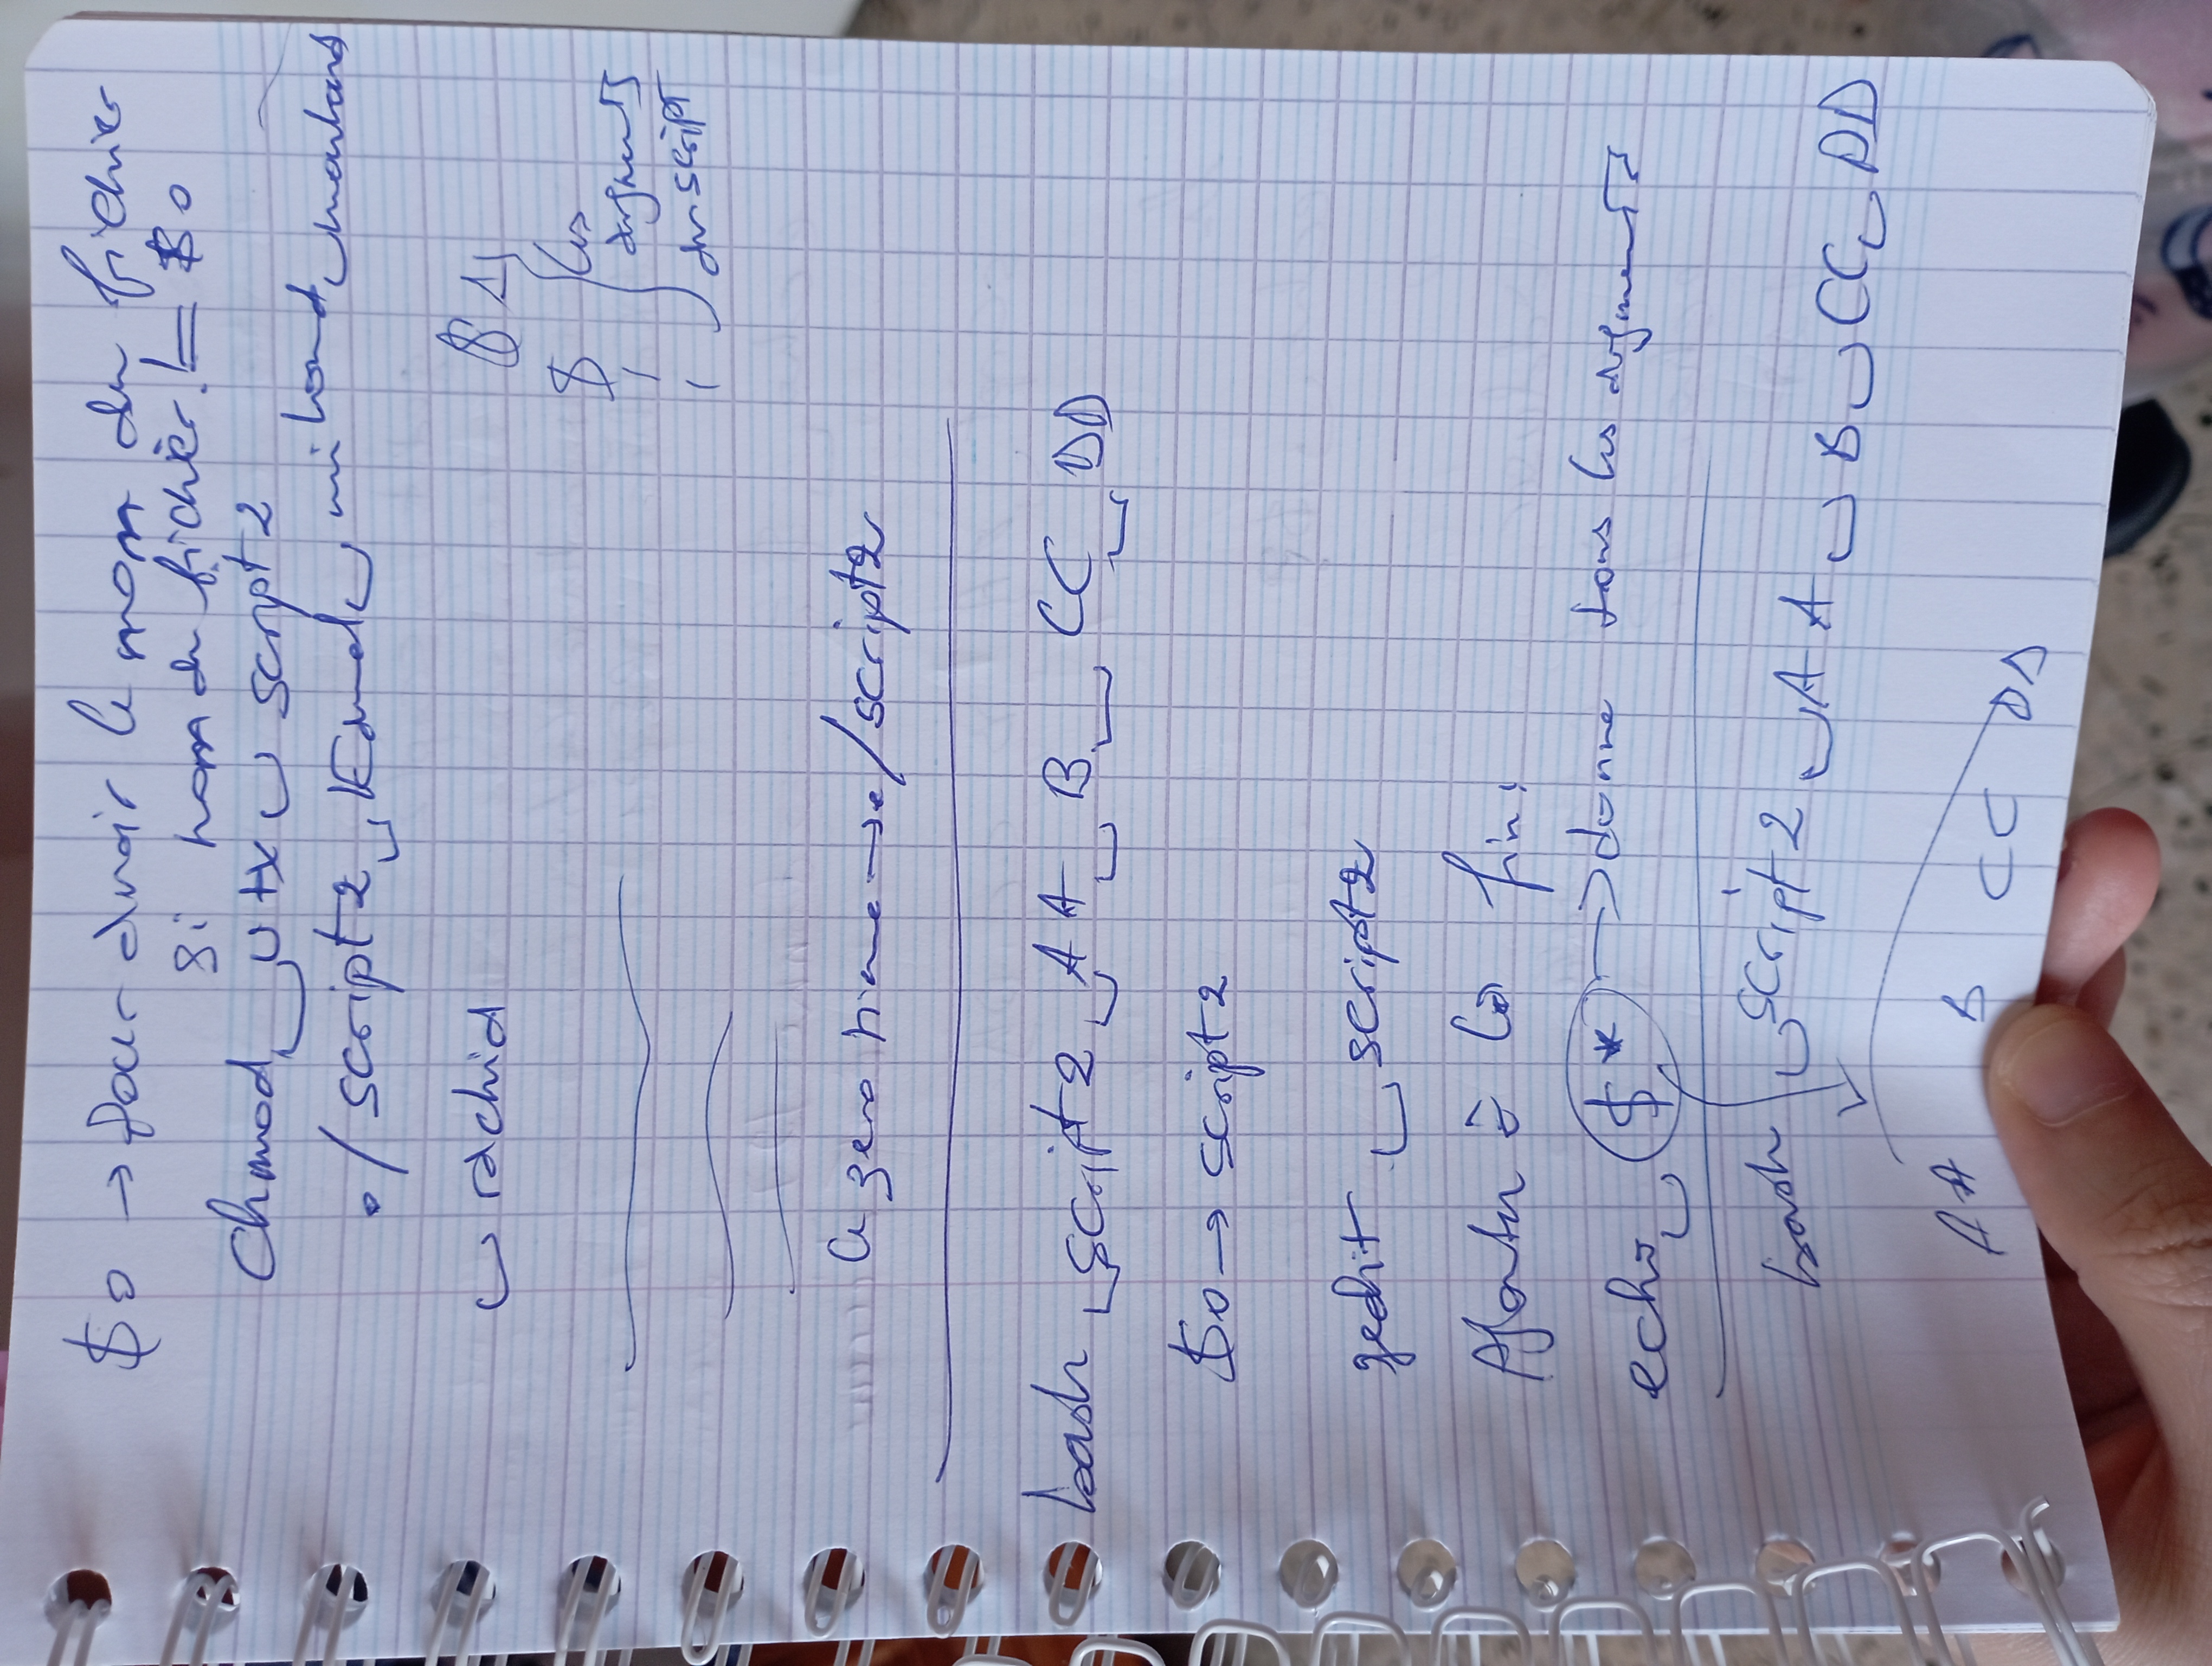 $0 → pour avoir le nom du fichier
si nom du fichier != $0
Chmod u+x script2
./script2 Kamel miloud
rachid
$1
$ les
arguments
du script
le zero → ./script2
bash script2 AA B CC DD
$0 → script2
gedit script2
Ajouter à la fin:
echo $* → donne tous les arguments
bash script2 AA B CC DD
AA B CC DD